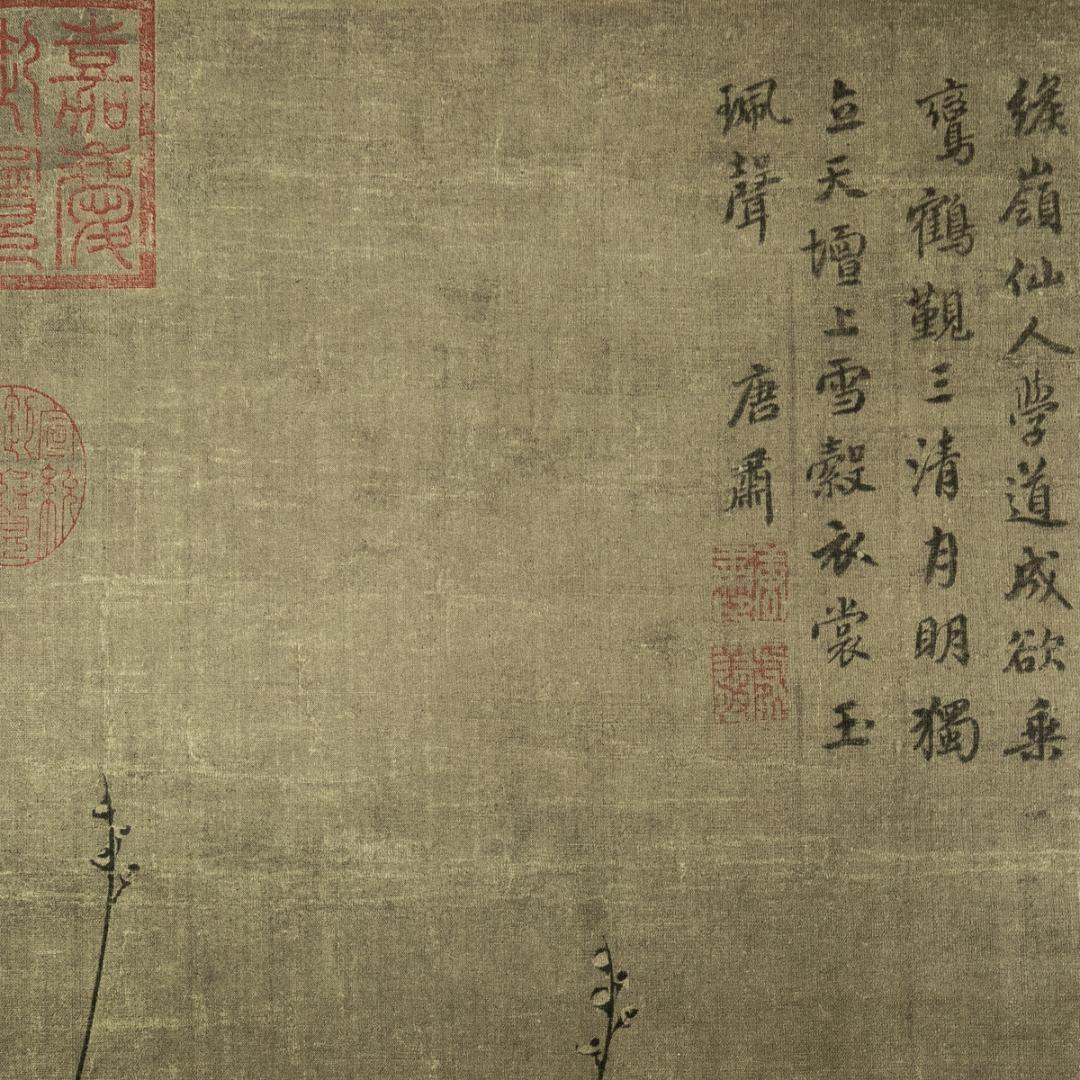 緱嶺仙人学道成欲乗
鸞鶴觐三清月明獨
立天壇上雪縠衣裳玉
珮聲
唐肅
嘉慶